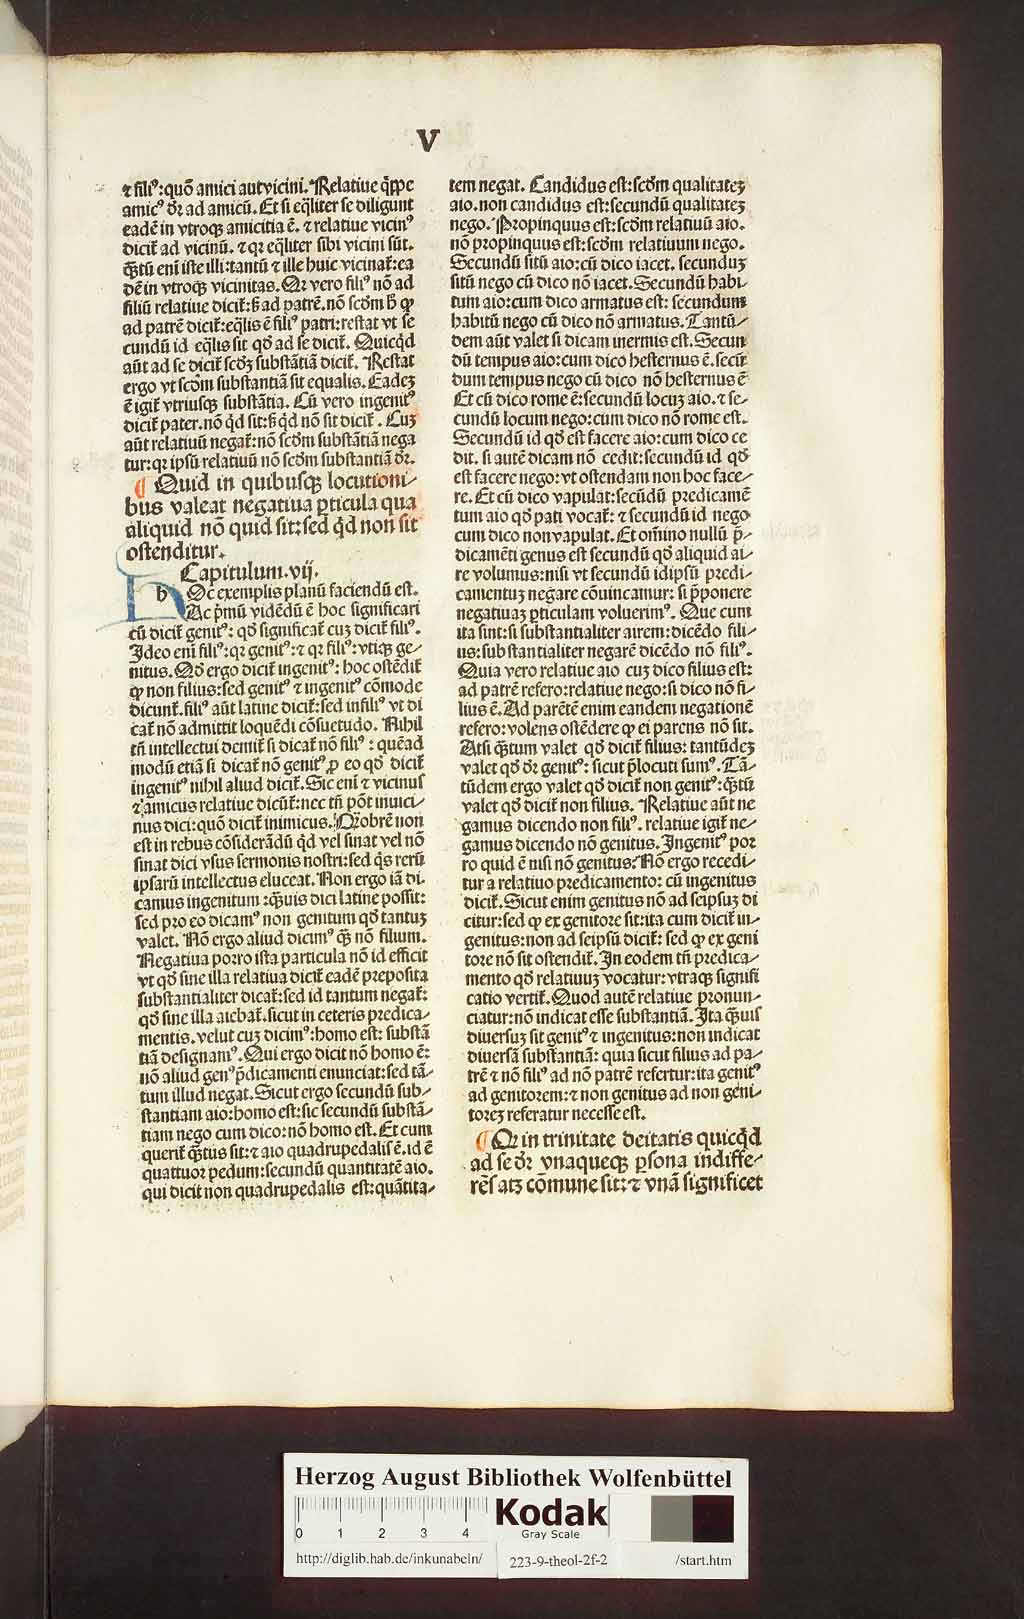 V
⁊ filiꝰ: quō amici aut vicini. Relatiue q̄ppe
amicꝰ dr̄ ad amicū. Et si eq̄liter se diligunt
eadē in vtroqꝫ amicitia ē. ⁊ relatiue vicinꝰ
dicit̄ ad vicinū. ⁊ qꝛ eq̄liter sibi vicini sūt.
q̄ꝫtū eni iste illi: tantū ⁊ ille huic vicinat̄: ea
dē in vtroqꝫ vicinitas. Qꝛ vero filiꝰ nō ad
filiū relatiue dicit̄: sꝫ ad patrē. nō scdm̄ h̄ ꝙ
ad patrē dicit̄: eq̄lis ē filiꝰ patri: restat vt se
cundū id eq̄lis sit qd̄ ad se dicit̄. Quicq̄d
aūt ad se dicit̄ scdꝫ substātiā dicit̄. Restat
ergo vt scdm̄ substantiā sit equalis. Eadeꝫ
ē igit̄ vtriusqꝫ substātia. Cū vero ingenitꝰ
dicit̄ pater. nō q̄d sit: sꝫ q̄d nō sit dicit̄. Cuꝫ
aūt relatiuū negat̄: nō scdm̄ substātiā nega
tur: qꝛ ipsū relatiuū nō scdm̄ substantiā dr̄.
¶ Quid in quibusqꝫ locutioni-
bus valeat negatiua ꝑticula qua
aliquid nō quid sit: sed q̄d non sit
ostenditur.
Capitulum .vij.
h Oc exemplis planū faciendū est.
Ac p̄mū vidēdū ē hoc significari
cū dicit̄ genitꝰ: qd̄ significat̄ cuꝫ dicit̄ filiꝰ.
Ideo eni filiꝰ: qꝛ genitꝰ: ⁊ qꝛ filiꝰ: vtiqꝫ ge-
nitus. Qd̄ ergo dicit̄ ingenitꝰ: hoc ostēdit̄
ꝙ non filius: sed genitꝰ ⁊ ingenitꝰ cōmode
dicunt̄. filiꝰ aūt latine dicit̄: sed infiliꝰ vt di
cat̄ nō admittit loquēdi cōsuetudo. Nihil
tn̄ intellectui demit̄ si dicat̄ nō filiꝰ: quēad
modū etiā si dicat̄ nō genitꝰ ꝓ eo qd̄ dicit̄
ingenitꝰ nihil aliud dicit̄. Sic eni ⁊ vicinus
⁊ amicus relatiue dicūt̄: nec tn̄ pōt inuici-
nus dici: quō dicit̄ inimicus. Qꝛobrē non
est in rebus cōsiderādū q̄d vel sinat vel nō
sinat dici vsus sermonis nostri: sed q̄s rerū
ipsarū intellectus eluceat. Non ergo iā di
camus ingenitum: q̄ꝫuis dici latine possit:
sed pro eo dicamꝰ non genitum qd̄ tantuꝫ
valet. Nō ergo aliud dicimꝰ q̄ꝫ nō filium.
Negatiua porro ista particula nō id efficit
vt qd̄ sine illa relatiua dicit̄ eadē preposita
substantialiter dicat̄: sed id tantum negat̄:
qd̄ sine illa aiebat̄. sicut in ceteris predica-
mentis. velut cuꝫ dicimꝰ: homo est: substā
tiā designamꝰ. Qui ergo dicit nō homo ē:
nō aliud genꝰ p̄dicamenti enunciat: sed tā-
tum illud negat. Sicut ergo secundū sub-
stantiam aio: homo est: sic secundū substā-
tiam nego cum dico: nō homo est. Et cum
querit̄ q̄ꝫtus sit: ⁊ aio quadrupedalis ē. id ē
quattuor pedum: secundū quantitatē aio.
qui dicit non quadrupedalis est: quātita-
tem negat. Candidus est: scdm̄ qualitateꝫ
aio. non candidus est: secundū qualitateꝫ
nego. Propinquus est: scdm̄ relatiuū aio.
nō propinquus est: scdm̄ relatiuum nego.
Secundū sitū aio: cū dico iacet. secunduꝫ
sitū nego cū dico nō iacet. Secundū habi-
tum aio: cum dico armatus est: secundum
habitū nego cū dico nō armatus. Tantū-
dem aūt valet si dicam inermis est. Secun
dū tempus aio: cum dico hesternus ē. secū
dum tempus nego cū dico nō hesternus ē
Et cū dico rome ē: secundū locuꝫ aio. ⁊ se-
cundū locum nego: cum dico nō rome est.
Secundū id qd̄ est facere aio: cum dico ce
dit. si autē dicam nō cedit: secundū id qd̄
est facere nego: vt ostendam non hoc face-
re. Et cū dico vapulat: secūdū predicamē
tum aio qd̄ pati vocat̄: ⁊ secundū id nego
cum dico non vapulat. Et om̄ino nullū p̄-
dicamēti genus est secundū qd̄ aliquid ai-
re volumus: nisi vt secundū idipsū predi-
camentuꝫ negare cōuincamur: si p̄ponere
negatiuaꝫ ꝑticulam voluerimꝰ. Que cum
ita sint: si substantialiter airem: dicēdo fili-
us: substantialiter negarē dicēdo nō filiꝰ.
Quia vero relatiue aio cuꝫ dico filius est:
ad patrē refero: relatiue nego: si dico nō fi-
lius ē. Ad parētē enim eandem negationē
refero: volens ostēdere ꝙ ei parens nō sit.
Atsi q̄ꝫtum valet qd̄ dicit̄ filius: tantūdeꝫ
valet qd̄ dr̄ genitꝰ: sicut p̄locuti sumꝰ. Tā-
tūdem ergo valet qd̄ dicit̄ non genitꝰ: q̄ꝫtū
valet qd̄ dicit̄ non filius. Relatiue aūt ne
gamus dicendo non filiꝰ. relatiue igit̄ ne-
gamus dicendo nō genitus. Ingenitꝰ por
ro quid ē nisi nō genitus? Nō ergo recedi-
tur a relatiuo predicamento: cū ingenitus
dicit̄. Sicut enim genitus nō ad seipsuꝫ di
citur: sed ꝙ ex genitore sit: ita cum dicit̄ in-
genitus: non ad seipsū dicit̄: sed ꝙ ex geni
tore nō sit ostendit̄. In eodem tn̄ predica-
mento qd̄ relatiuuꝫ vocatur: vtraqꝫ signifi
catio vertit̄. Quod autē relatiue pronun-
ciatur: nō indicat esse substantiā. Ita q̄ꝫuis
diuersuꝫ sit genitꝰ ⁊ ingenitus: non indicat
diuersā substantiā: quia sicut filius ad pa-
trē ⁊ nō filiꝰ ad nō patrē refertur: ita genitꝰ
ad genitorem: ⁊ non genitus ad non geni-
toreꝫ referatur necesse est.
¶ Qꝛ in trinitate deitatis quicq̄d
ad se dr̄ vnaqueqꝫ ꝑsona indiffe-
rēs atꝫ cōmune sit: ⁊ vnā significet
Herzog August Bibliothek Wolfenbüttel
0 1 2 3 4
Kodak
Gray Scale
http://diglib.hab.de/inkunabeln/ 223-9-theol-2f-2 /start.htm